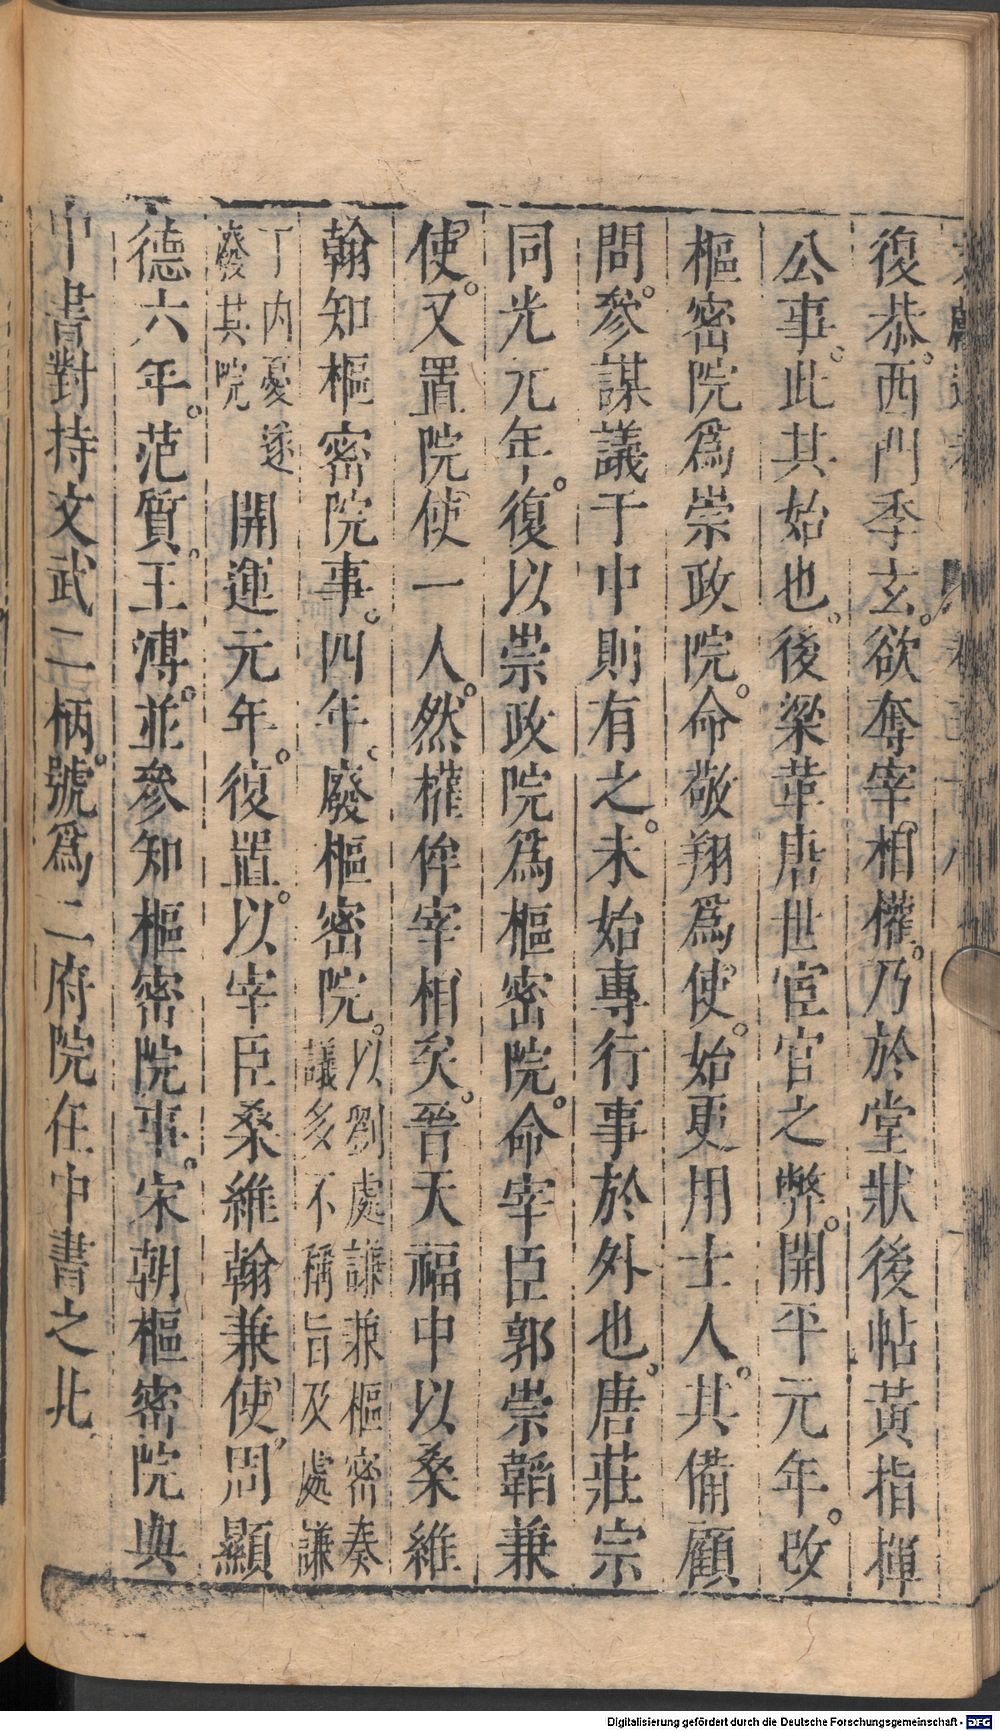 復恭。西門季玄。欲奪宰相權。乃於堂狀後帖黃指揮
公事。此其始也。後梁革唐世宦官之弊。開平元年。改
樞密院爲崇政院。命敬翔爲使。始更用士人。其備顧
問。參謀議于中則有之。未始專行事於外也。唐莊宗
同光元年。復以崇政院爲樞密院。命宰臣郭崇韜兼
使。又置院使一人。然權侔宰相矣。晉天福中以桑維
翰知樞密院事。四年。廢樞密院。以劉處讓兼樞密奏
議多不稱旨及處讓
丁內憂遂
廢其院
開運元年。復置。以宰臣桑維翰兼使。周顯
德六年。范質。王溥。並參知樞密院事。宋朝樞密院與
中書對持文武二柄。號爲二府院在中書之北
Digitalisierung gefördert durch die Deutsche Forschungsgemeinschaft - DFG